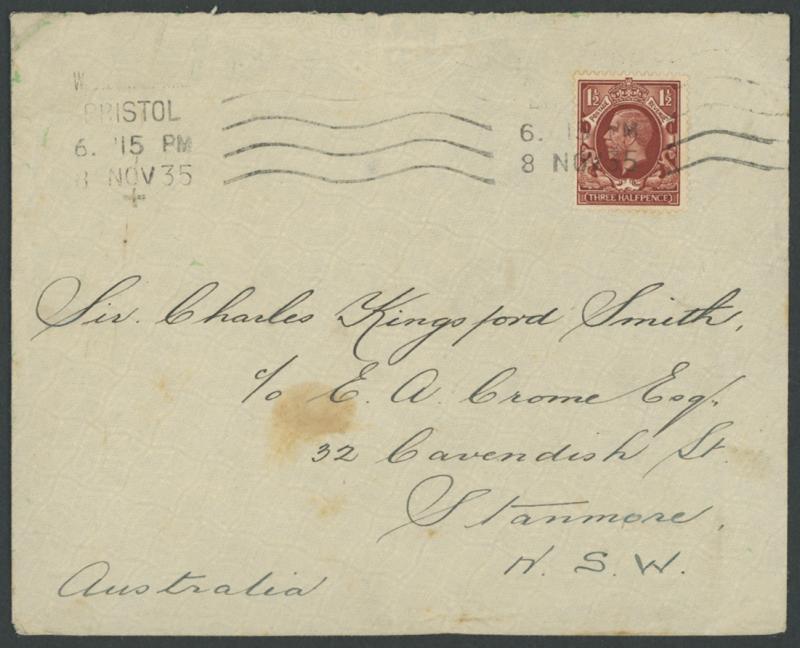 BRISTOL
6. 15 PM
8 NOV 35
6. 15 PM
8 NOV 35
1½ 1½
POSTAGE REVENUE
THREE HALFPENCE
Sir. Charles Kingsford Smith,
c/o E. A. Crome Esq.,
32 Cavendish St.
Stanmore,
N. S. W.
Australia